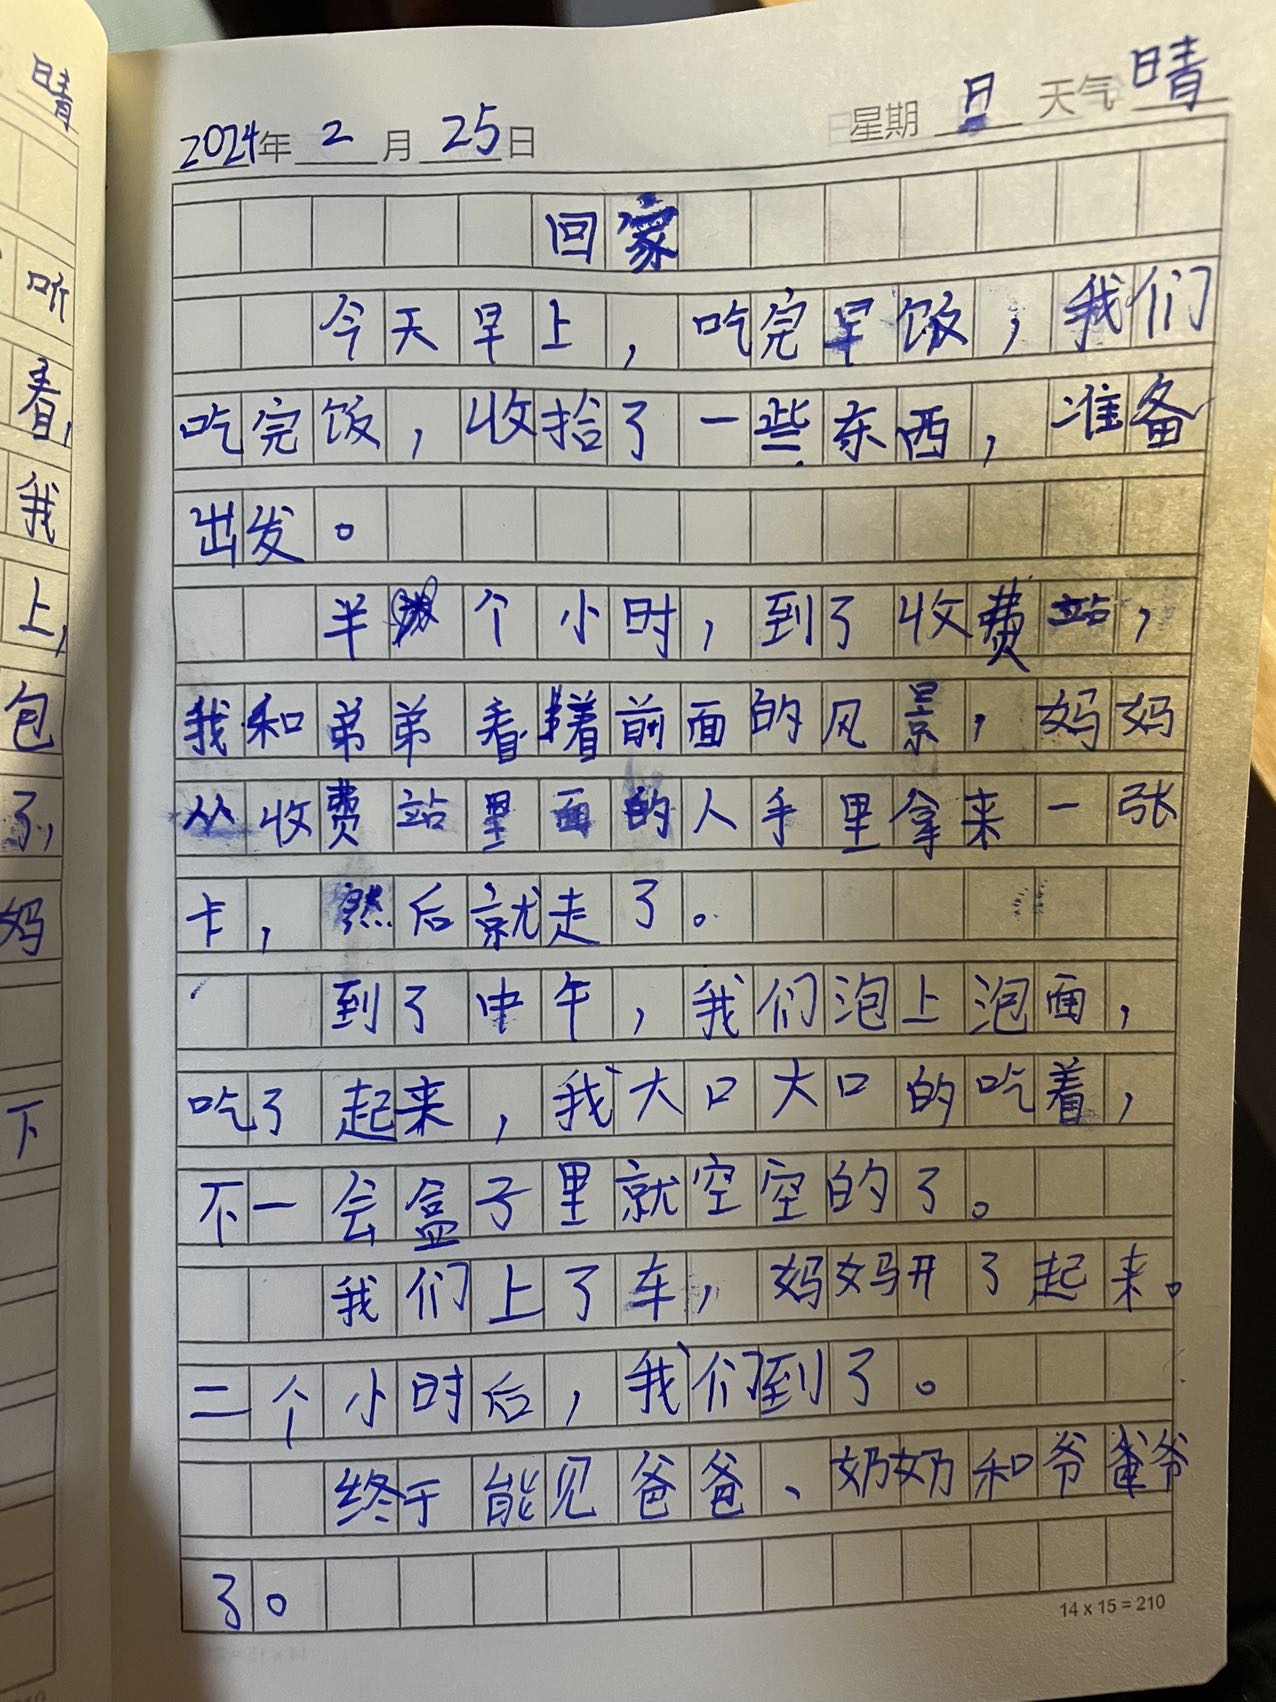 晴
听
看，
我
上，
包
了，
妈
下
2024年 2 月 25 日 星期 日 天气 晴
回家
今天早上，吃完早饭，我们
吃完饭，收拾了一些东西，准备
出发。
半个小时，到了收费站，
我和弟弟看着前面的风景，妈妈
从收费站里面的人手里拿来一张
卡，然后就走了。
到了中午，我们泡上泡面，
吃了起来，我大口大口的吃着，
不一会盒子里就空空的了。
我们上了车，妈妈开了起来。
二个小时后，我们到了。
终于能见爸爸、奶奶和爷爷
了。
14 x 15 = 210